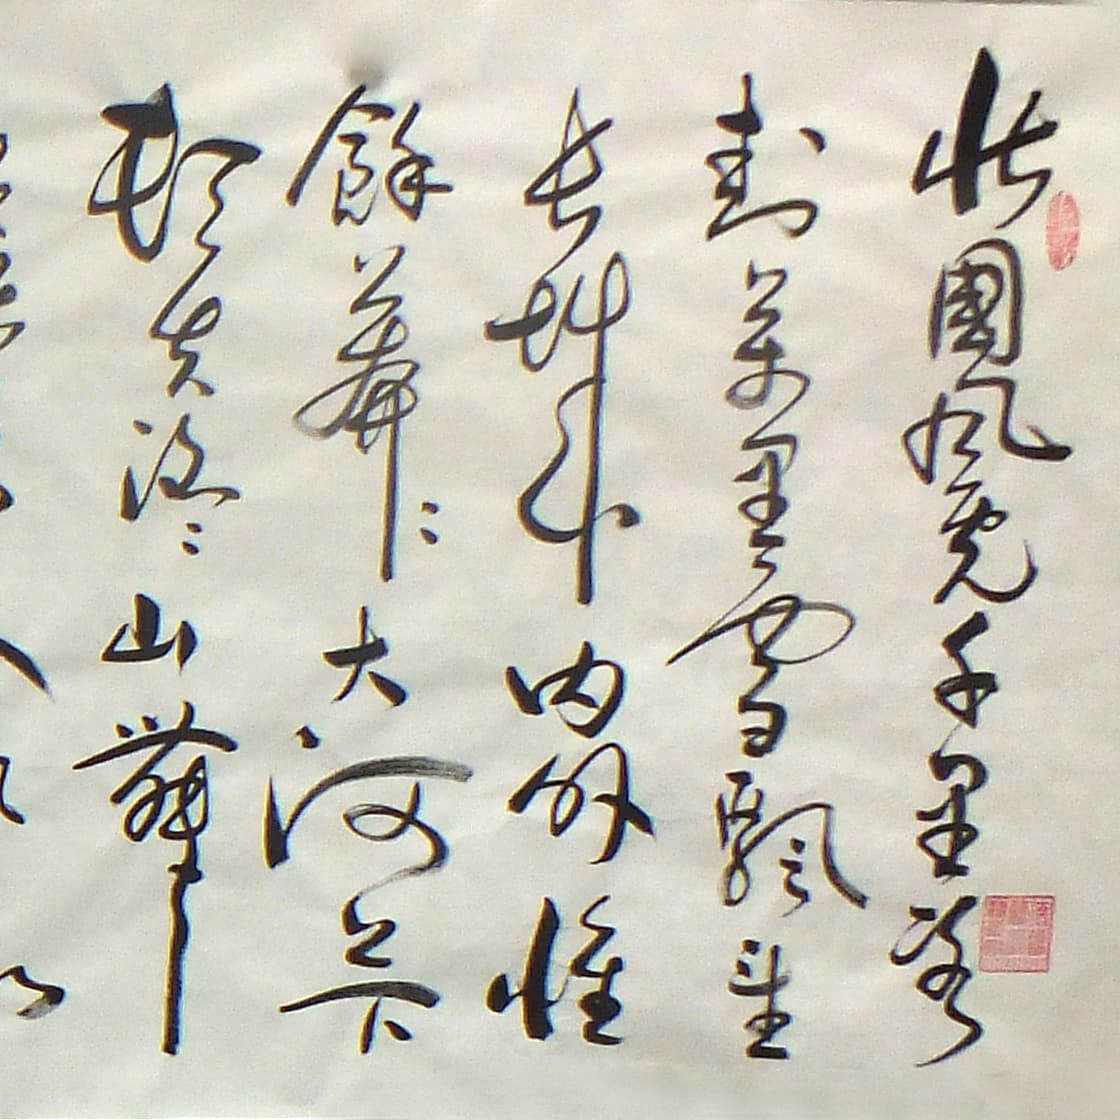 北國風光千里冰
封萬里雪飄望
長城内外惟
餘莽〻大河上下
頓失滔〻山舞